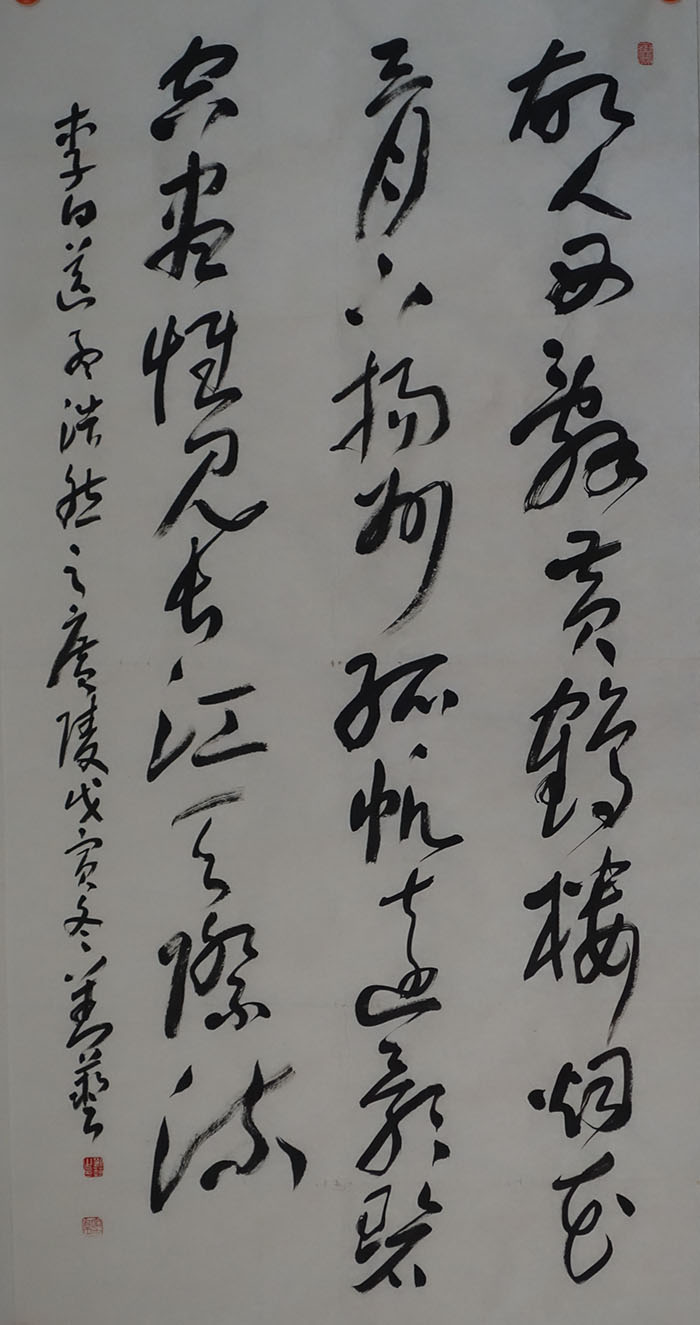 故人西辭黄鶴樓烟花
三月下揚州孤帆遠影碧
空盡惟見長江天際流
李白送孟浩然之廣陵戊寅冬